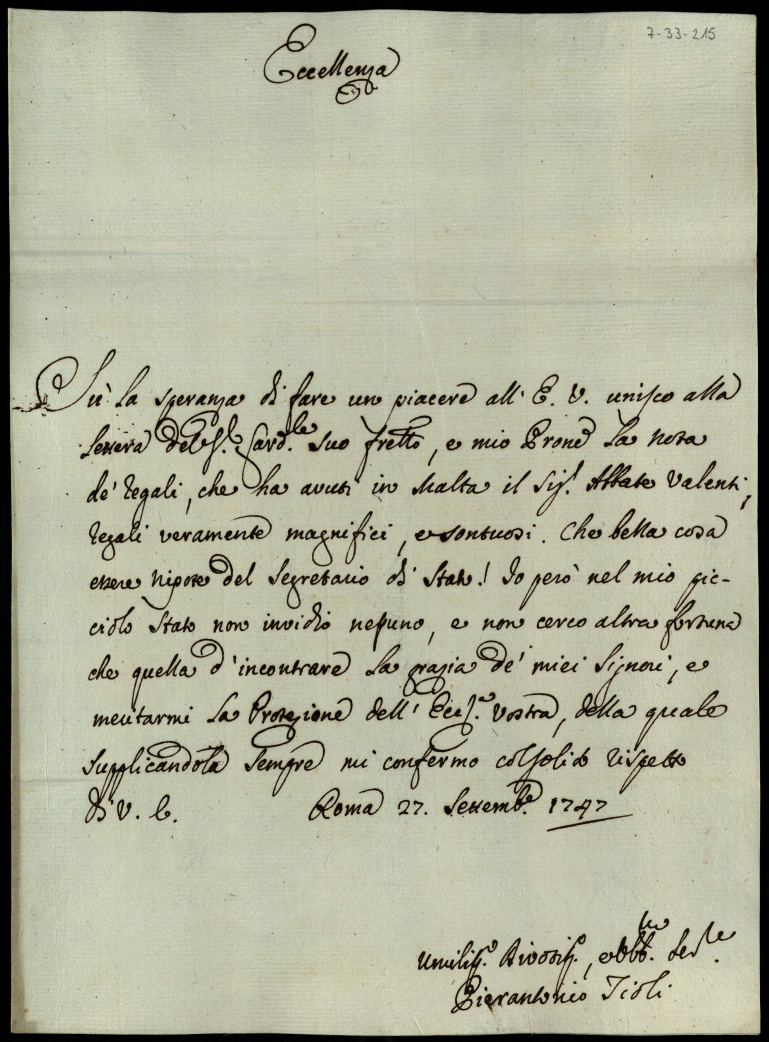 7-33-215
Eccellenza
Sù la speranza di fare un piacere all' E. V. unisco alla
lettera del S.r Card.le suo frello, e mio Prone la nota
de' regali, che ha avuti in Malta il Sig.r Abbate Valenti,
regali veramente magnifici, e sontuosi. Che bella cosa
essere Nipote del Segretario di Stato! Io però nel mio pic-
ciolo Stato non invidio nessuno, e non cerco altra fortuna
che quella d'incontrare la grazia de' miei Signori, e
meritarmi la Protezione dell' Ecc.a Vostra, della quale
supplicandola sempre mi confermo col solito rispetto
di V. E. Roma 27. Settemb.e 1747
Umiliss.o Divotiss.o, ed obb.mo Ser.re
Pierantonio Tioli